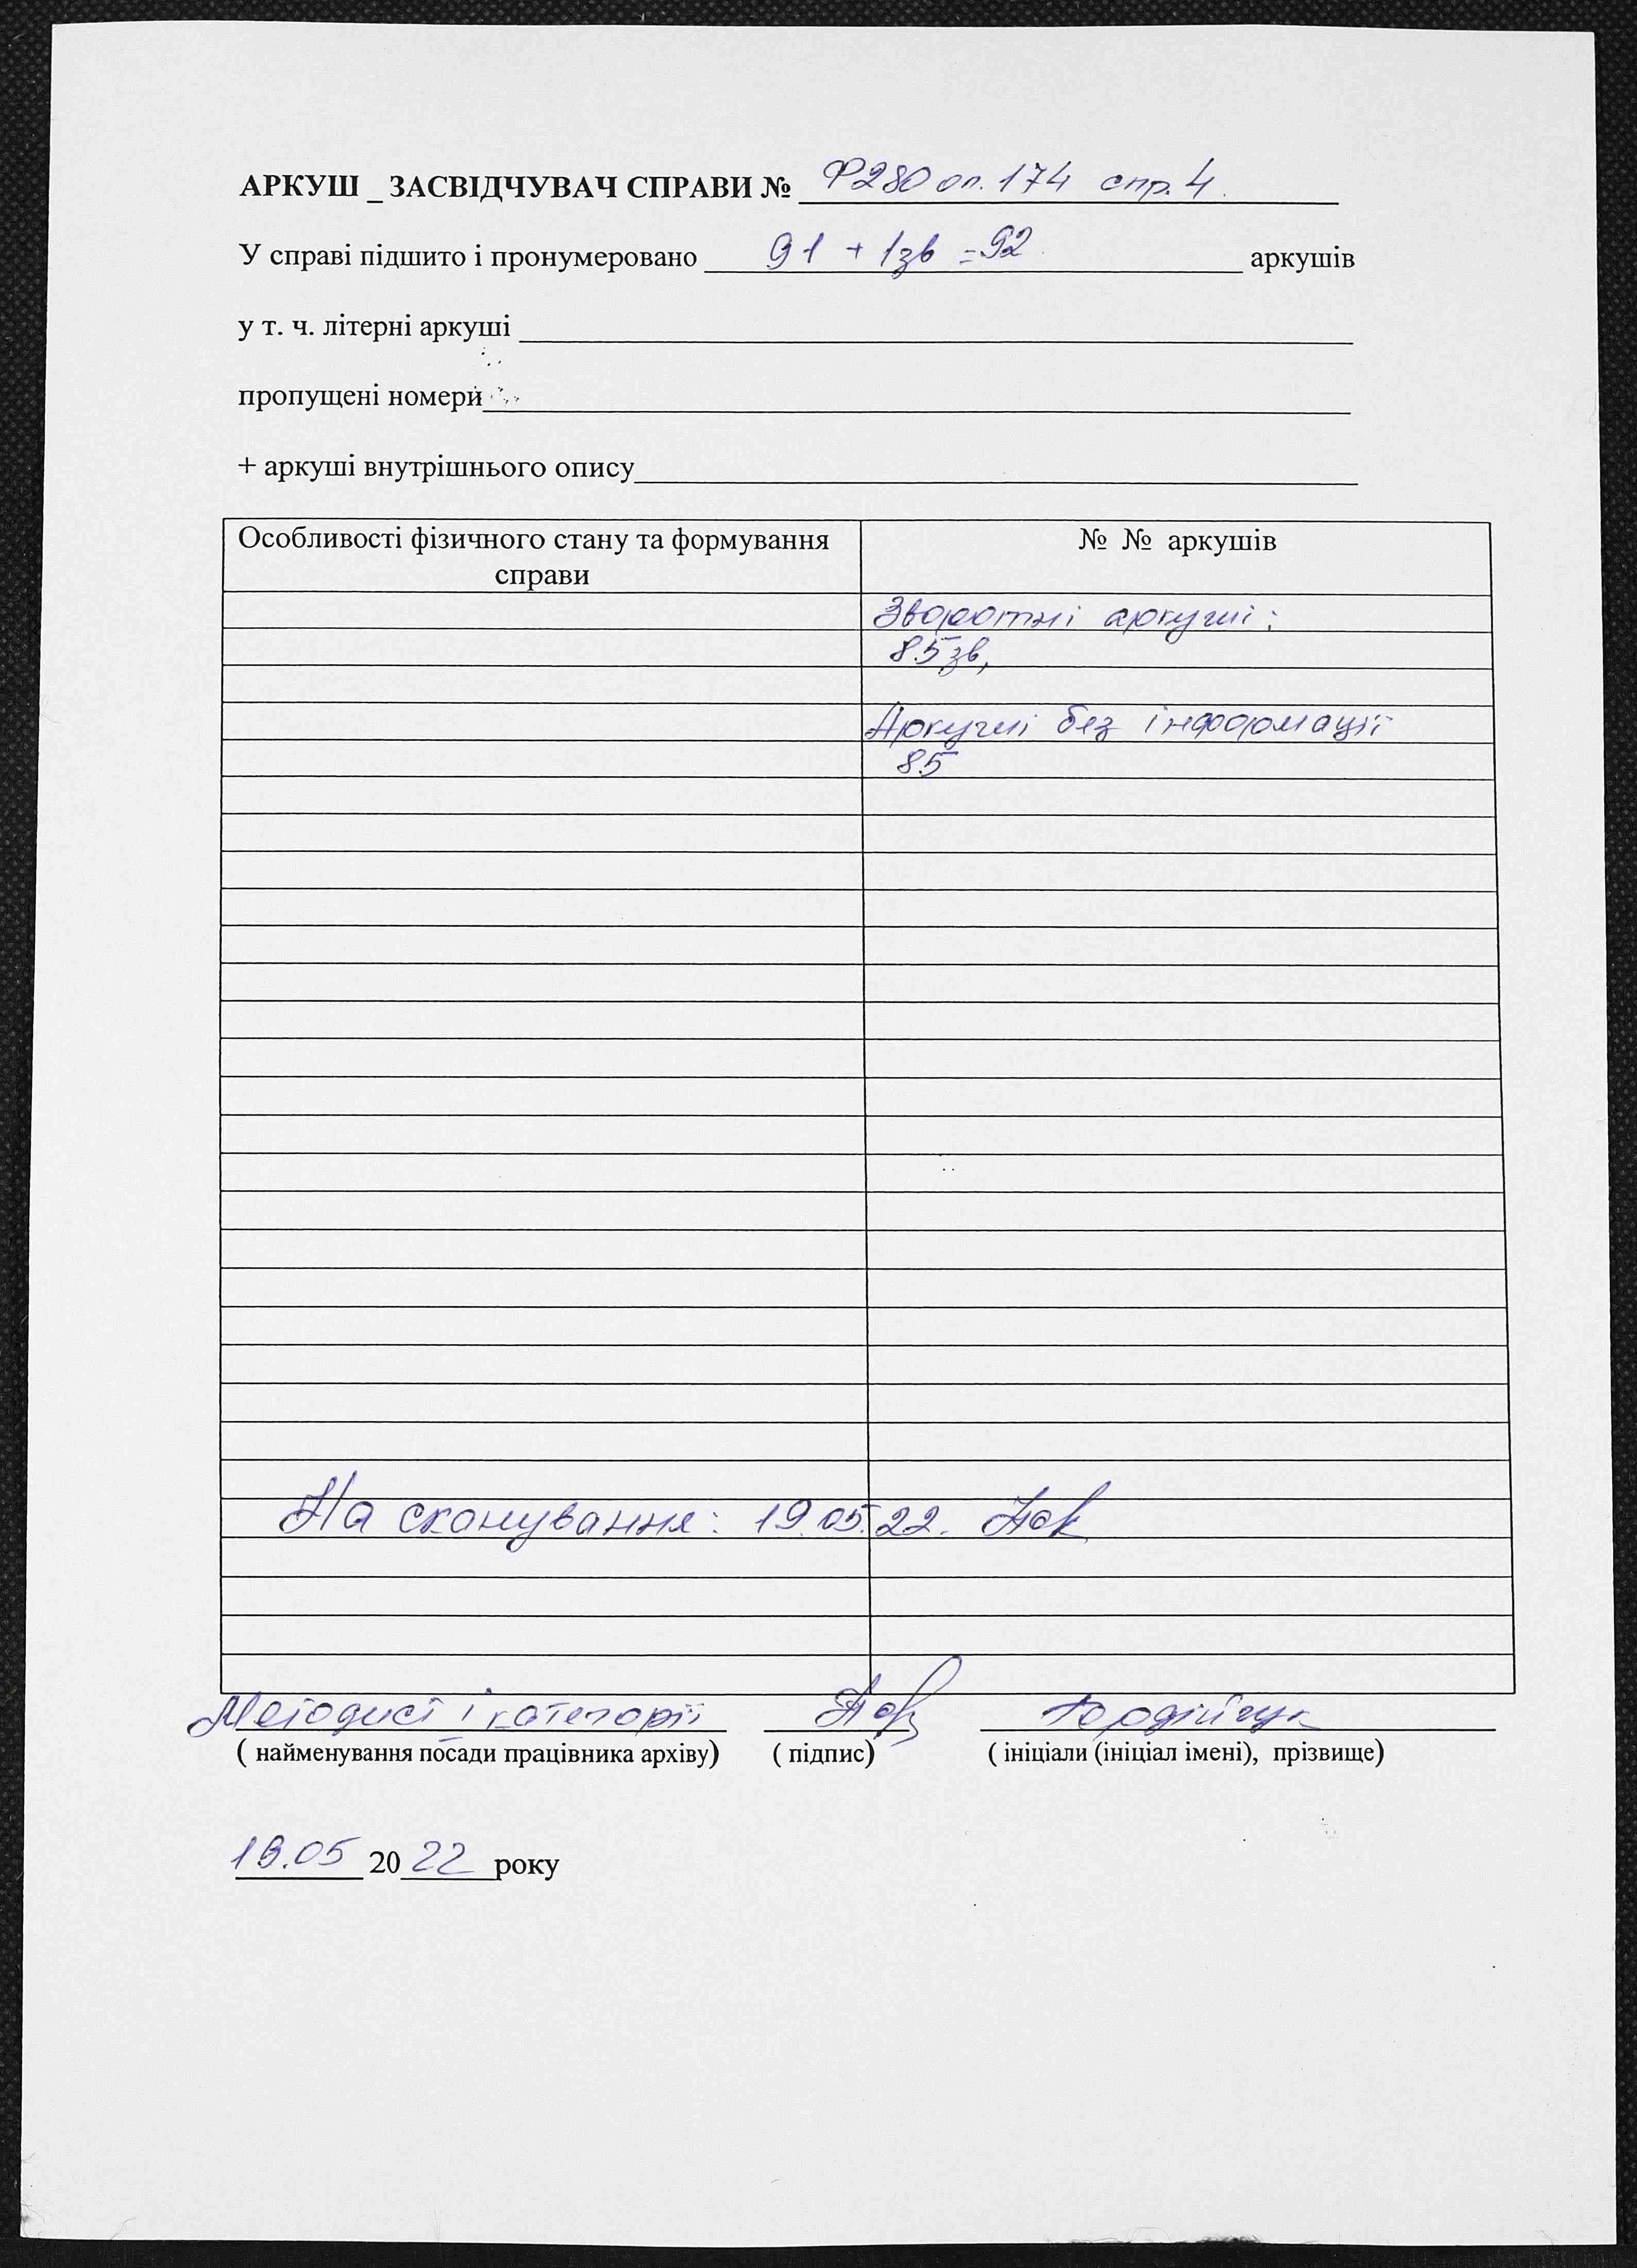 АРКУШ _ ЗАСВІДЧУВАЧ СПРАВИ № Ф280 оп. 174 спр. 4
У справі підшито і пронумеровано 91 + 1зв = 92 аркушів
у т. ч. літерні аркуші
пропущені номери
+ аркуші внутрішнього опису
Особливості фізичного стану та формування
справи
№ № аркушів
Зворотні аркуші:
85зв,
Аркуші без інформації
85
На сканування: 19.05.22.
Методист і категорії
( найменування посади працівника архіву) ( підпис) ( ініціали (ініціал імені), прізвище)
19.05 2022 року